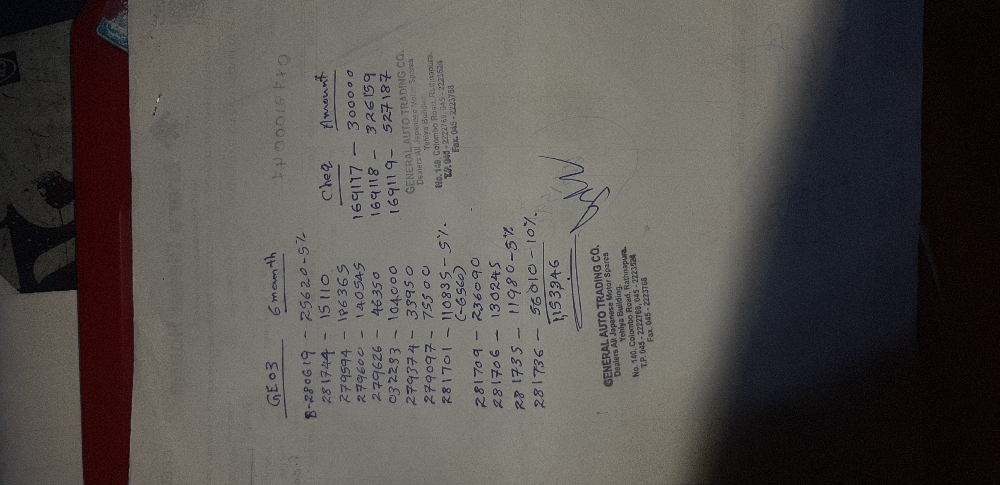 GE03 6 mounth
B-280619 - 25620-5%
281744 - 15110
279594 - 186365
279600 - 140545
279626 - 46350
032283 - 104000
279374 - 33950
279097 - 75500
281701 - 110835 - 5%
(-6560)
281709 - 236090
281706 - 130245
281735 - 11980-5%
281736 - 56010-10%
1,153946
Cheq Amount
169117 - 300000
169118 - 326159
169119 - 527187
GENERAL AUTO TRADING CO.
Dealers All Japanese Motor Spares
Yehiya Building.
No. 140, Colombo Road, Ratnapura.
T.P. 045 - 2222768, 045 - 2223524
Fax. 045 - 2223768
GENERAL AUTO TRADING CO.
Dealers All Japanese Motor Spares
Yehiya Building.
No. 140, Colombo Road, Ratnapura.
T.P. 045 - 2222768, 045 - 2223524
Fax. 045 - 2223768